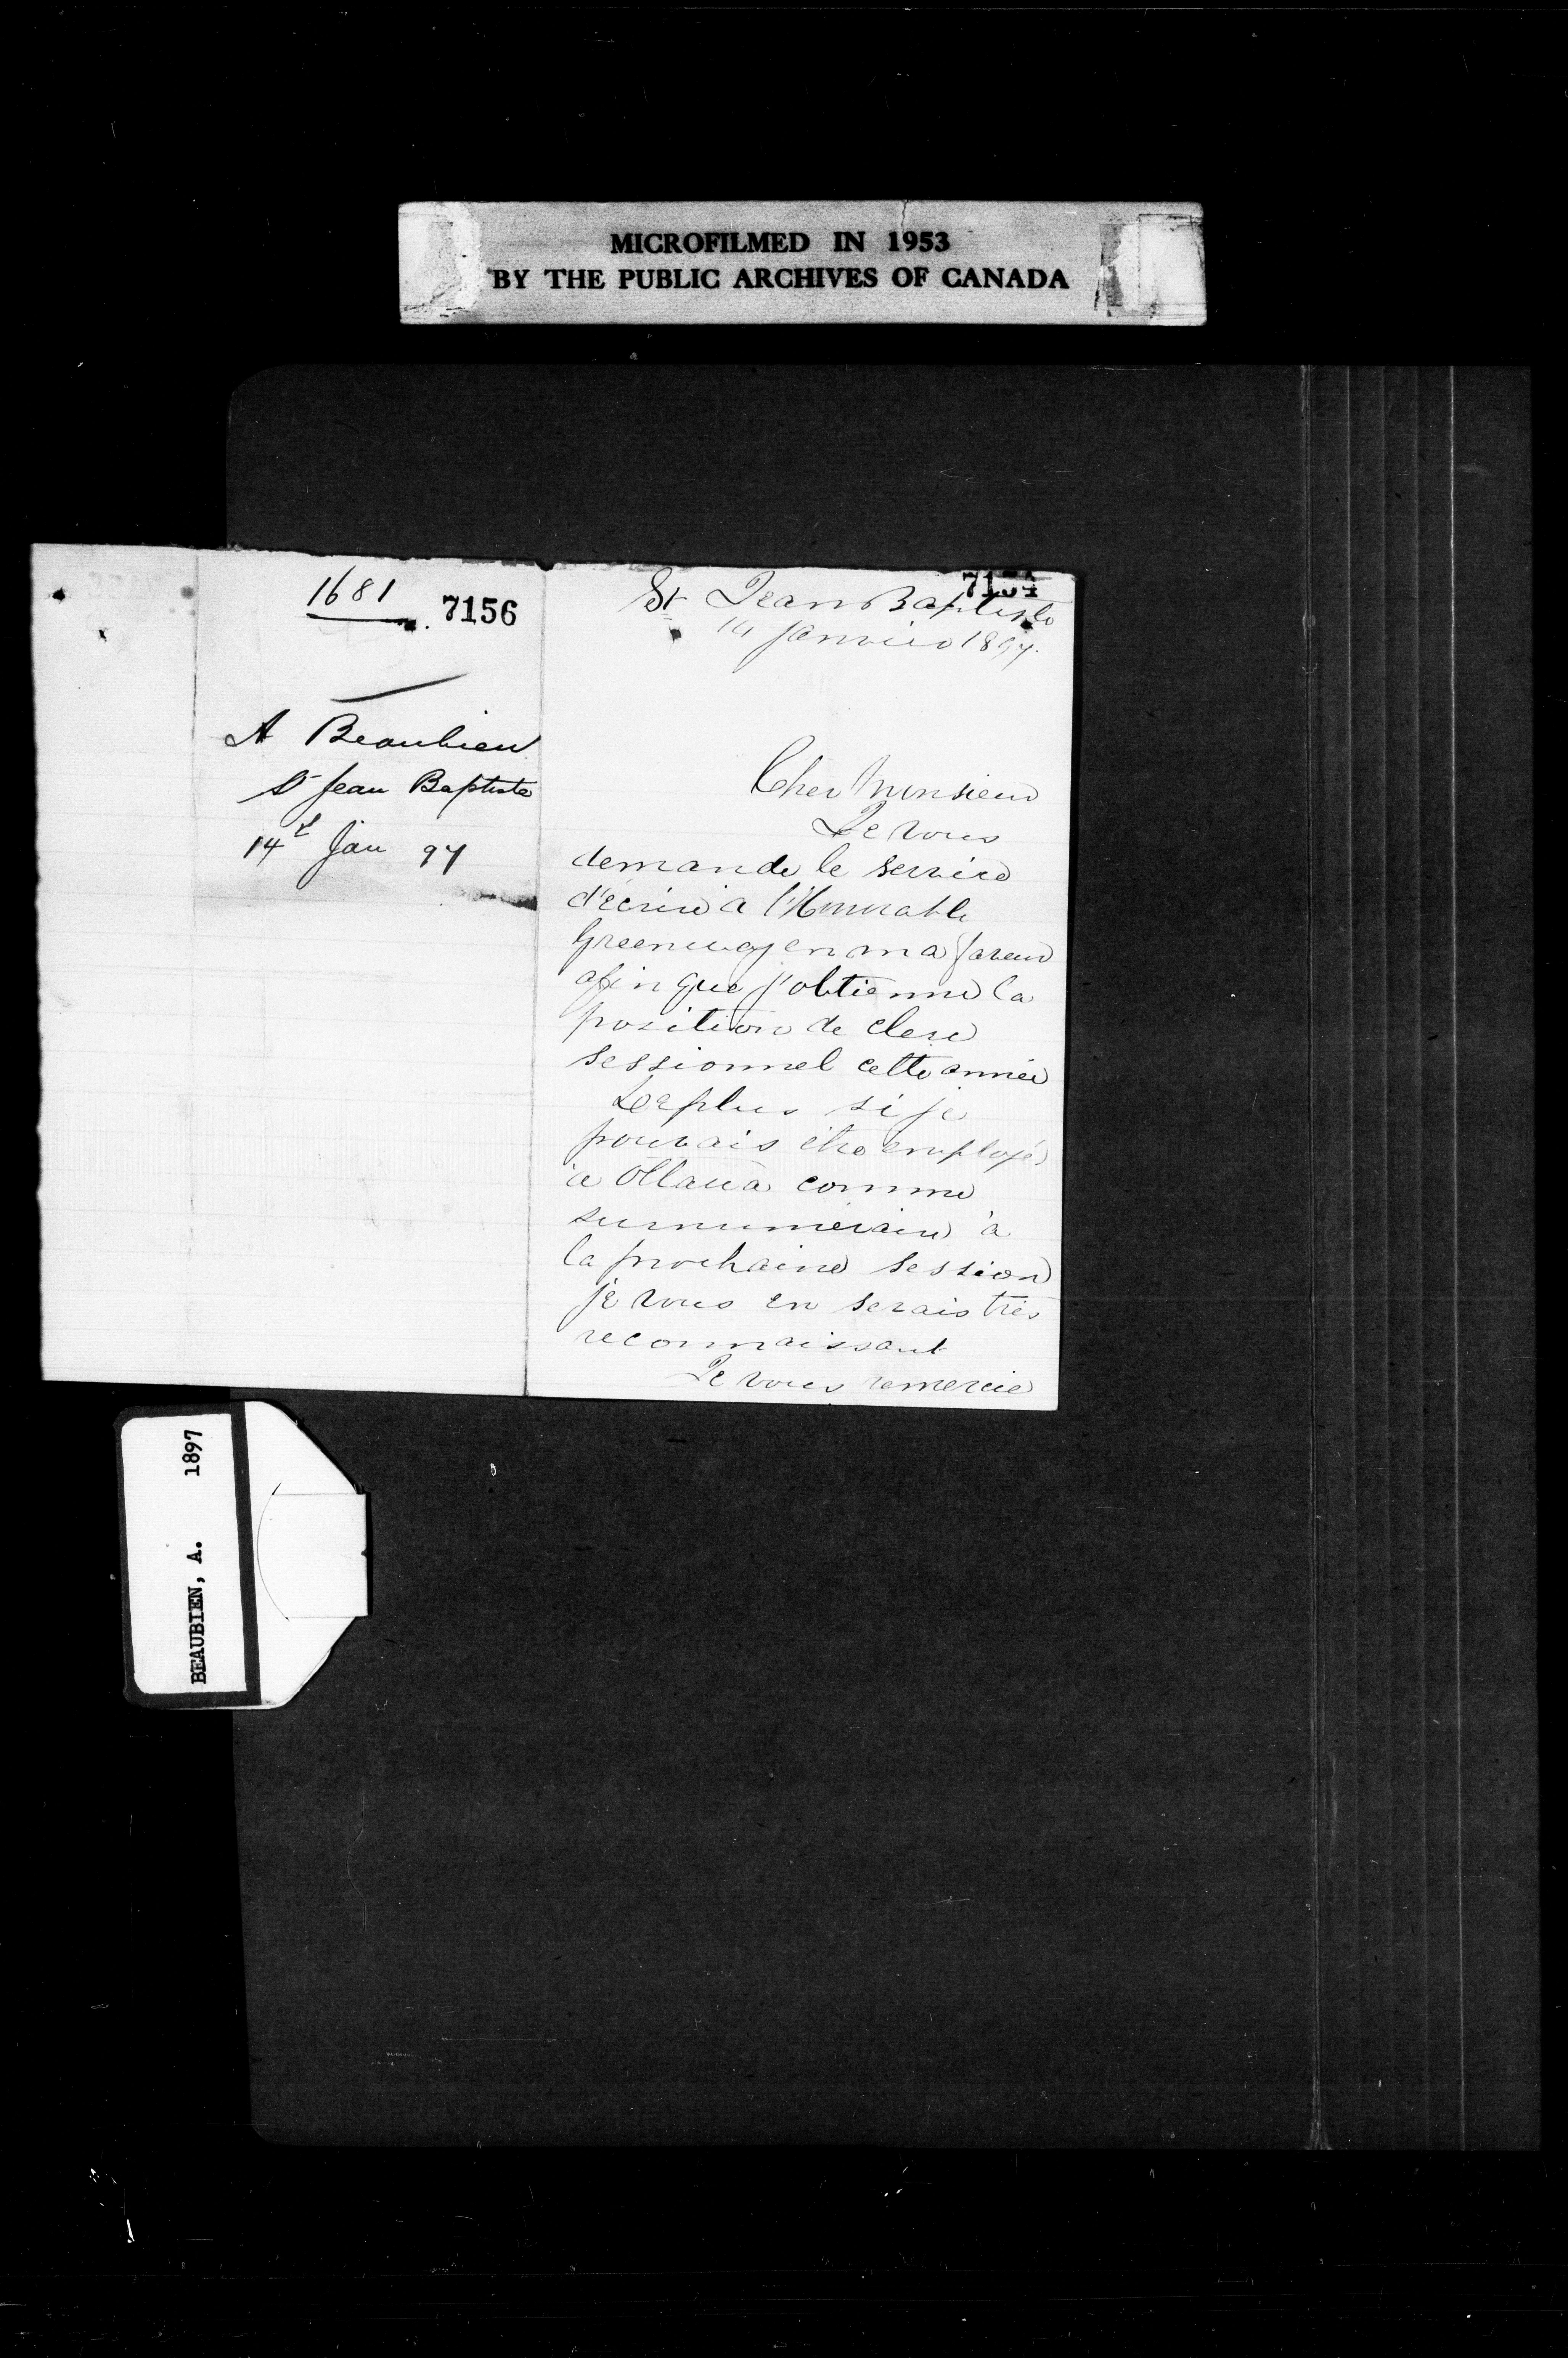 MICROFILMED IN 1953
BY THE PUBLIC ARCHIVES OF CANADA
1681
7156
A Beaubien
St Jean Baptiste
14 Jan 97
7154
St Jean Baptiste
14 Janvier 1897.
Cher Monsieur
Je vous
demande le service
d'écrire à l'Honorable
Greenway en ma faveur
afin que j'obtienne la
position de clerc
sessionnel cette année
De plus si je
pouvais être employé
à Ottawa comme
surnuméraire à
la prochaine session
je vous en serais très
reconnaissant
Je vous remercie
BEAUBIEN, A. 1897